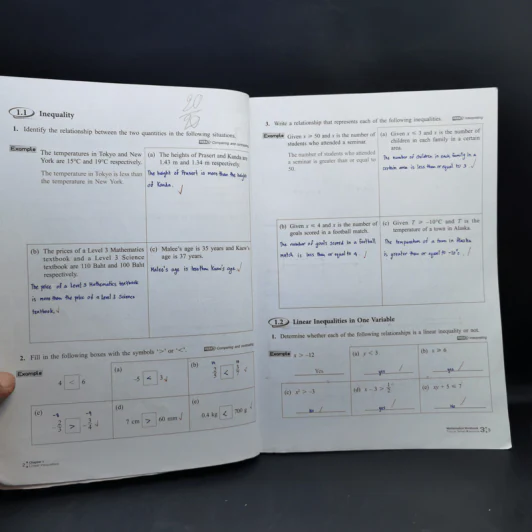 20
20
1.1 Inequality
1. Identify the relationship between the two quantities in the following situations.
Example The temperatures in Tokyo and New
York are 15°C and 19°C respectively.
The temperature in Tokyo is less than
the temperature in New York.
(a) The heights of Prasert and Kanda are
1.43 m and 1.34 m respectively.
The height of Prasert is more than the height
of Kanda.
(b) The prices of a Level 3 Mathematics
textbook and a Level 3 Science
textbook are 110 Baht and 100 Baht
respectively.
The price of a Level 3 Mathematics textbook
is more than the price of a Level 3 Science
textbook.
(c) Malee's age is 35 years and Kiew's
age is 37 years.
Malee's age is less than Kiew's age.
2. Fill in the following boxes with the symbols ">" or "<".
Example
4 < 6
(a)
-5 < 3
(b)
(c)
(d)
7 cm > 60 mm
(e)
0.4 kg < 700 g
3. Write a relationship that represents each of the following inequalities.
Example Given x ≥ 50 and x is the number of
students who attended a seminar.
The number of students who attended
a seminar is greater than or equal to
50.
(a) Given x ≤ 3 and x is the number of
children in each family in a certain
area.
The number of children in each family in a
certain area is less than or equal to 3
(b) Given x ≤ 4 and x is the number of
goals scored in a football match.
The number of goals scored in a football
match is less than or equal to 4
(c) Given T ≥ -10°C and T is the
temperature of a town in Alaska.
The temperature of a town in Alaska
is greater than or equal to -10°c.
1.2 Linear Inequalities in One Variable
1. Determine whether each of the following relationships is a linear inequality or not.
Example x > -12
Yes
(a) y < 5
yes
(b)
yes
(c)
no
(d)
yes
(e)
no